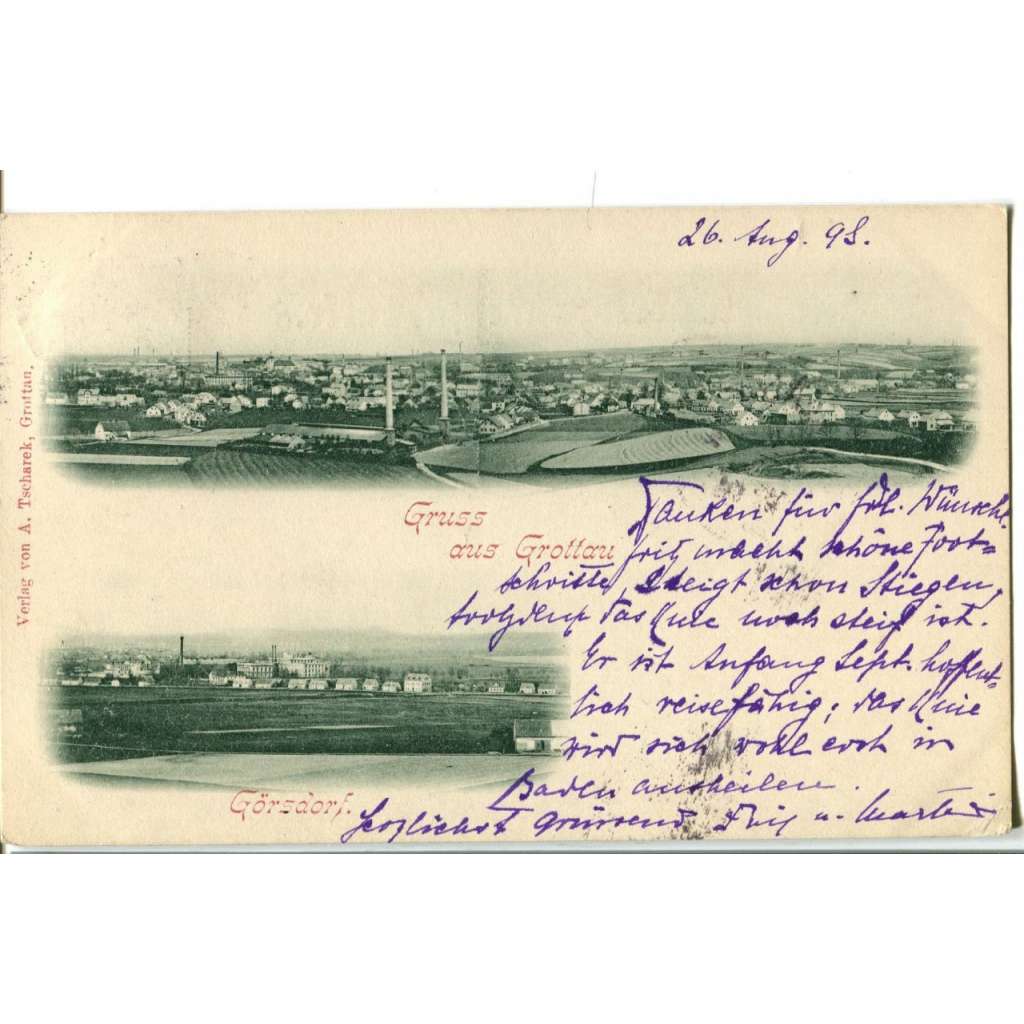 26. Aug. 98.
Verlag von A. Tscharek, Grottau.
Gruss
aus Grottau
Görsdorf.
Danken für frdl. Wünsche.
Fritz macht schöne Fort=
schritte, steigt schon Stiegen,
trotzdem das Knie noch steif ist.
Er ist Anfang Sept. hoffent-
lich reisefähig; das Knie
wird sich wohl erst in
Baden ausheilen.
Herzlichst grüssend Fritz u. Martha